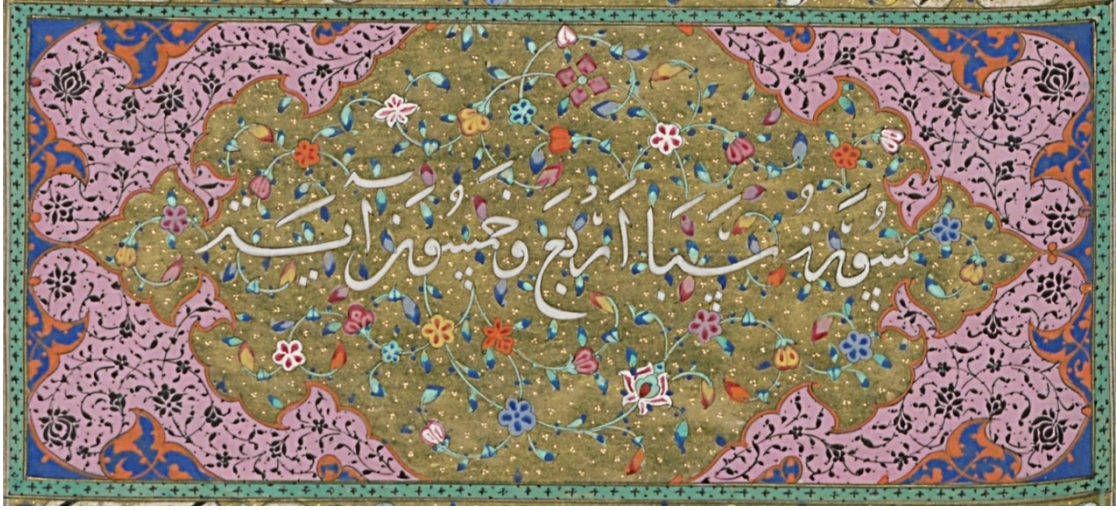 سُورَةُ سَبَا اَرْبَعَ وَخَمْسُونَ آيَة